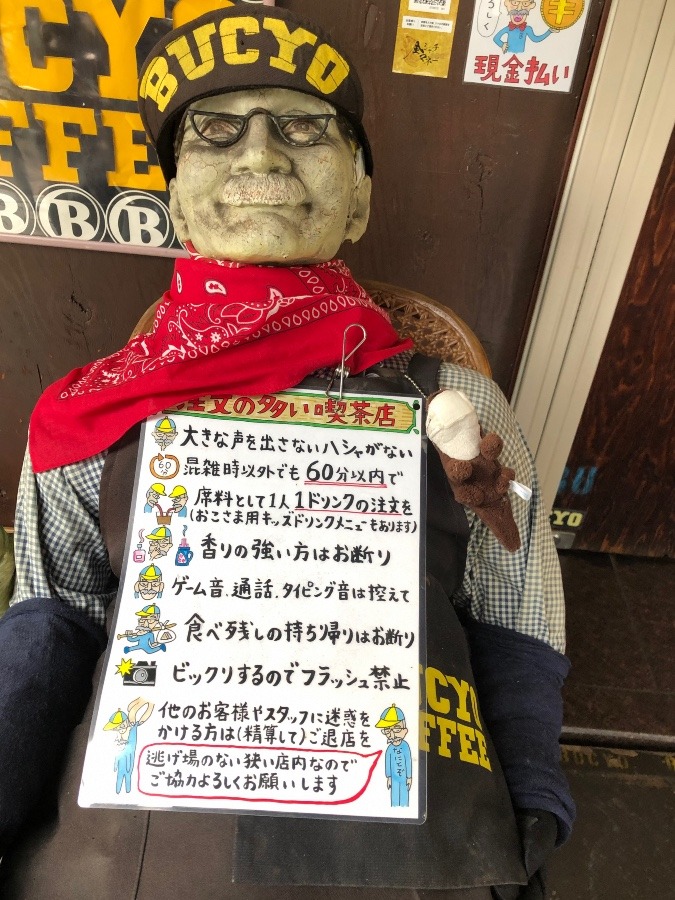 BUCYO
CYO
FFEE
B B B
現金払い
注文の多い喫茶店
大きな声を出さないハシャがない
60分
混雑時以外でも60分以内で
席料として1人1ドリンクの注文を
(おこさま用キッズドリンクメニューもあります)
香りの強い方はお断り
ゲーム音、通話、タイピング音は控えて
食べ残しの持ち帰りはお断り
ビックリするのでフラッシュ禁止
他のお客様やスタッフに迷惑を
かける方は(精算して)ご退店を
逃げ場のない狭い店内なので
ご協力よろしくお願いします
なにとぞ
UCYO
OFFEE
YO